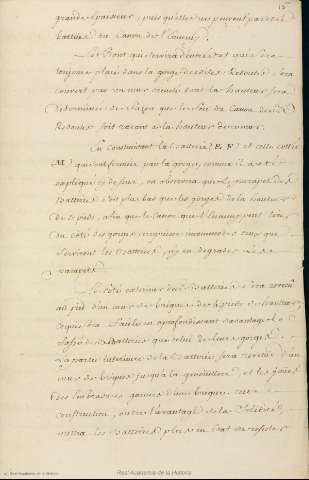 15
grande Epaisseur, puis qu'elles ne peuvent pas être
battües du Canon de l'Ennemi.
Le Pont qui servira d'entrée et qui sera
toujours placé dans la gorge desdites Redoutes, sera
couvert par un mur crenelé dont la hauteur sera
determinée de façon que le feu du Canon de la
Redoute soit rasant à la hauteur de ce mur.
En construisant la batterie (E. F.) et celle cottée
(M.) qui est fermée par la gorge, comme il a été
expliqué cy dessus, on observera que le parapet des
Batteries soit plus bas que les gorges de la hauteur
de pieds, afin que le canon que l'Ennemi peut tirer
du côté des gorges n'incommode ceux qui
serviront les Batteries, ny en degrade le
parapet.
Le côté exterieur des Batteries sera revetu
au pied d'un mur de briques de pieds de hauteur
ce qui sera facile en approfondissant davantage le
fossé des Batteries que celui de leurs gorges.
La partie interieure de la Batterie sera revetüe d'un
mur de briques jusqu'à la genouillere, et les joües
des embrasures garnies d'une brique, cette
construction, outre l'avantage de la solidité,
mettra les Batteries plus en état de resister
(c) Real Academia de la Historia
Real Academia de la Historia